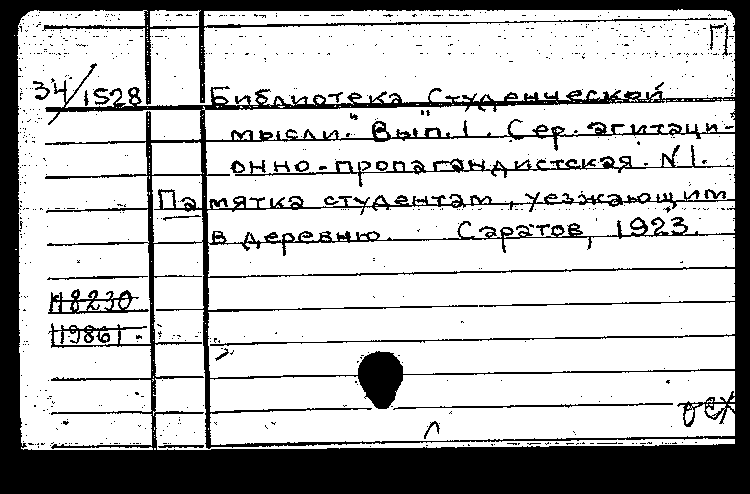 П
34/1528 Библиотека Студенческой
мысли." Вып. 1. Сер. агитаци-
онно-пропагандистская. N 1.
Памятка студентам, уезжающим
в деревню. Саратов, 1923.
118230
119861.
осх